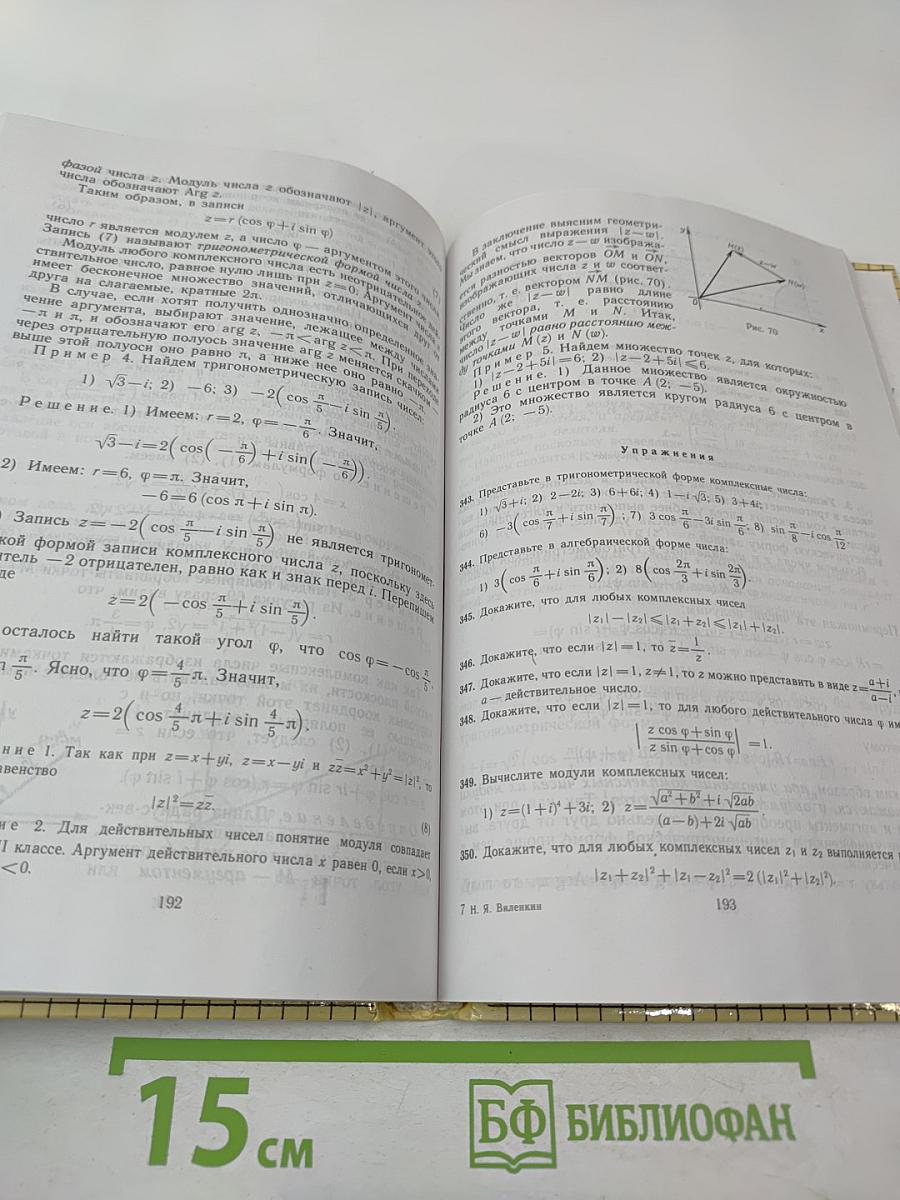 фазой числа z. Модуль числа z обозначают |z|, аргумент этого
числа обозначают Arg z.
Таким образом, в записи
z=r (cos φ+i sin φ)
(7)
число r является модулем z, а число φ — аргументом этого числа.
Запись (7) называют тригонометрической формой числа z.
Модуль любого комплексного числа есть неотрицательное дей-
ствительное число, равное нулю лишь при z=0. Аргумент числа
имеет бесконечное множество значений, отличающихся друг от
друга на слагаемые, кратные 2π.
В случае, если хотят получить однозначно определенное зна-
чение аргумента, выбирают значение, лежащее между
—π и π, и обозначают его arg z, —π<arg z<π. При переходе
через отрицательную полуось значение arg z меняется скачком —
выше этой полуоси оно равно π, а ниже нее оно равно —π.
Пример 4. Найдем тригонометрическую запись чисел:
1) √3—i; 2) —6; 3) —2(cos π/5—i sin π/5).
Решение. 1) Имеем: r=2, φ=—π/6. Значит,
√3—i=2(cos(—π/6)+i sin(—π/6)).
2) Имеем: r=6, φ=π. Значит,
—6=6 (cos π+i sin π).
) Запись z=—2(cos π/5—i sin π/5) не является тригономет-
кой формой записи комплексного числа z, поскольку здесь
итель —2 отрицателен, равно как и знак перед i. Перепишем
де
z=2(—cos π/5+i sin π/5).
осталось найти такой угол φ, что cos φ=—cos π/5,
π/5. Ясно, что φ=4/5 π. Значит,
z=2(cos 4/5 π+i sin 4/5 π).
ние 1. Так как при z=x+yi, z=x—yi и zz̅=x²+y²=|z|², то
венство
|z|²=zz̅.
(8)
ие 2. Для действительных чисел понятие модуля совпадает
II классе. Аргумент действительного числа x равен 0, если x>0,
<0.
192
В заключение выясним геометри-
ческий смысл выражения |z—w|.
Мы знаем, что число z—w изобража-
ется разностью векторов OM и ON,
изображающих числа z и w соответ-
ственно, т. е. вектором NM (рис. 70).
Число же |z—w| равно длине
этого вектора, т. е. расстоянию
между точками M и N. Итак,
число |z—w| равно расстоянию меж-
ду точками M (z) и N (w).
y
M(z)
z—w
N(w)
0
x
Рис. 70
Пример 5. Найдем множество точек z, для которых:
1) |z—2+5i|=6; 2) |z—2+5i|⩽6.
Решение. 1) Данное множество является окружностью
радиуса 6 с центром в точке A (2; —5).
2) Это множество является кругом радиуса 6 с центром в
точке A (2; —5).
Упражнения
343. Представьте в тригонометрической форме комплексные числа:
1) √3+i; 2) 2—2i; 3) 6+6i; 4) 1—i√3; 5) 3+4i;
6) —3(cos π/7+i sin π/7); 7) 3 cos π/6—3i sin π/6; 8) sin π/8—i cos π/12.
344. Представьте в алгебраической форме числа:
1) 3(cos π/6+i sin π/6); 2) 8(cos 2π/3+i sin 2π/3).
345. Докажите, что для любых комплексных чисел
|z₁|—|z₂|⩽|z₁+z₂|⩽|z₁|+|z₂|.
346. Докажите, что если |z|=1, то z̅=1/z.
347. Докажите, что если |z|=1, z≠1, то z можно представить в виде z=a+i/a—i,
a — действительное число.
348. Докажите, что если |z|=1, то для любого действительного числа φ им
|z cos φ+sin φ / z sin φ+cos φ|=1.
349. Вычислите модули комплексных чисел:
1) z=(1+i)⁴+3i; 2) z=√a²+b²+i√2ab / (a—b)+2i√ab.
350. Докажите, что для любых комплексных чисел z₁ и z₂ выполняется
|z₁+z₂|²+|z₁—z₂|²=2 (|z₁|²+|z₂|²).
7 Н. Я. Виленкин
193
15 см
БФ БИБЛИОФАН